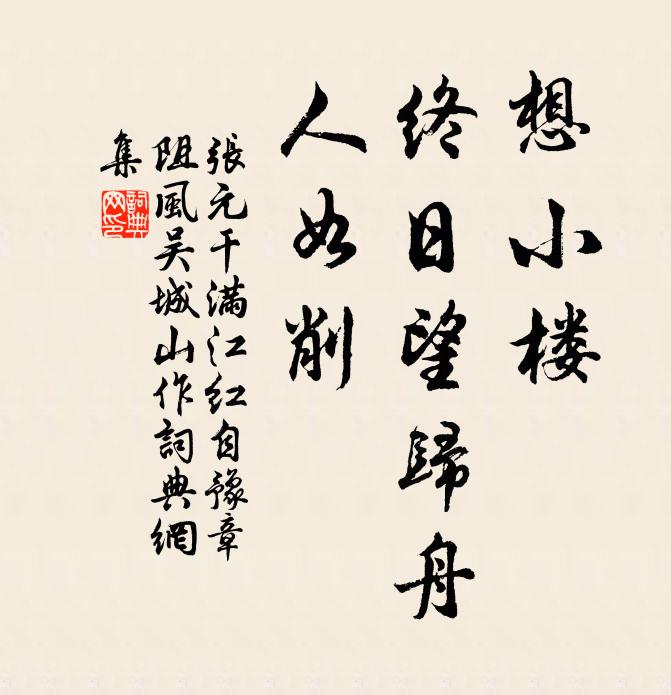 想小楼
终日望歸舟
人如削
張元干滿江红自豫章
阻風吴城山作詞典網
集
詞典
网印